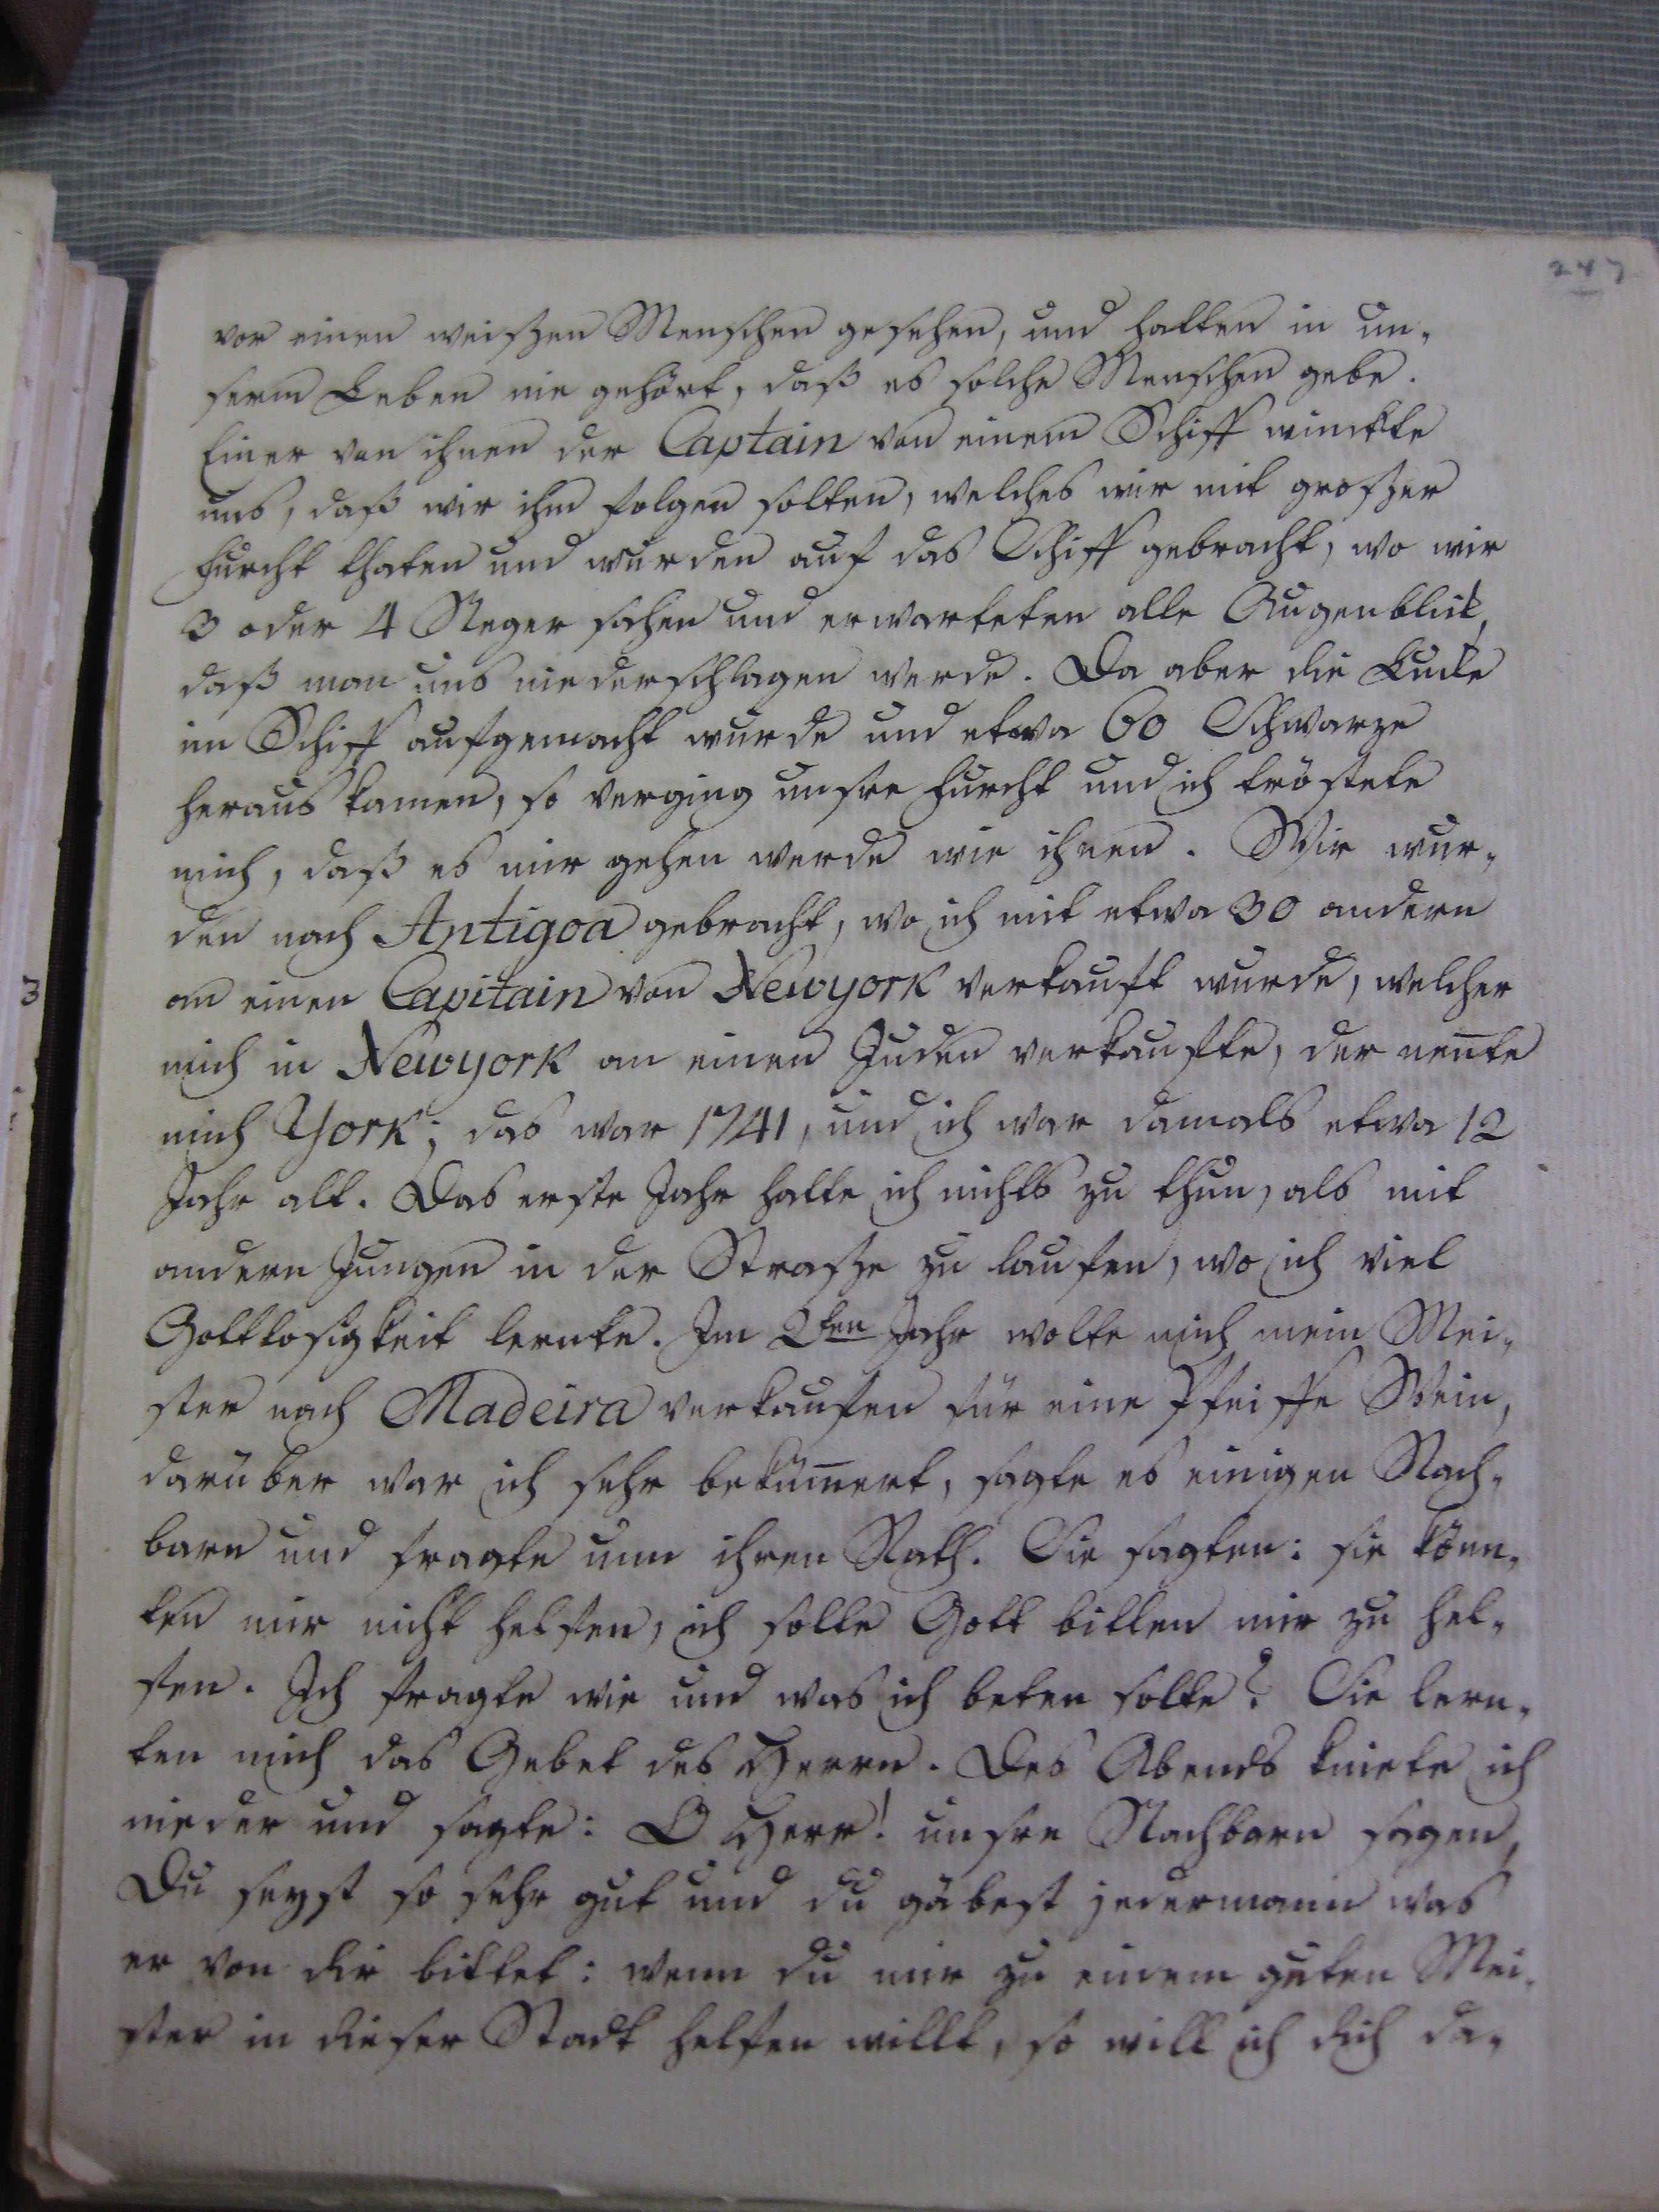 247
vor einen weiszen Menschen gesehen, und hatten in un-
serm Leben nie gehört, daß es solche Menschen gebe.
Einer von ihnen der Captain von einem Schiff winckte
uns, daß wir ihm folgen solten, welches wir mit groszer
Furcht thaten und wurden auf das Schiff gebracht, wo wir
3 oder 4 Neger sahen und erwarteten alle Augenblick,
daß man uns niederschlagen werde. Da aber die Lucke
im Schiff aufgemacht wurde und etwa 60 Schwarze
heraus kamen, so verging unsre Furcht und ich tröstete
mich, daß es mir gehen werde wie ihnen. Wir wur-
den nach Antigoa gebracht, wo ich mit etwa 30 andern
an einen Capitain von Newyork verkauft wurde, welcher
mich in Newyork an einen Juden verkaufte, der nen̄te
mich York; das war 1741, und ich war damals etwa 12
Jahr alt. Das erste Jahr hatte ich nichts zu thun, als mit
andern Jungen in der Strasze zu laufen, wo ich viel
Gottlosigkeit lernte. Im 2ten Jahr wolte mich mein Mei-
ster nach Madeira verkaufen für eine Pfeiffe Wein,
darüber war ich sehr beküm̄ert, sagte es einigen Nach-
barn und fragte um ihren Rath. Sie sagten: sie könn-
ten mir nicht helfen, ich solle Gott bitten mir zu hel-
fen. Ich fragte wie und was ich beten solte? Sie lern-
ten mich das Gebet des Herrn. Des Abends kniete ich
nieder und sagte: O Herr! unsre Nachbarn sagen,
Du seyst so sehr gut und du gäbest jedermann was
er von dir bittet: wenn du mir zu einem guten Mei-
ster in dieser Stadt helfen willt, so will ich dich da-